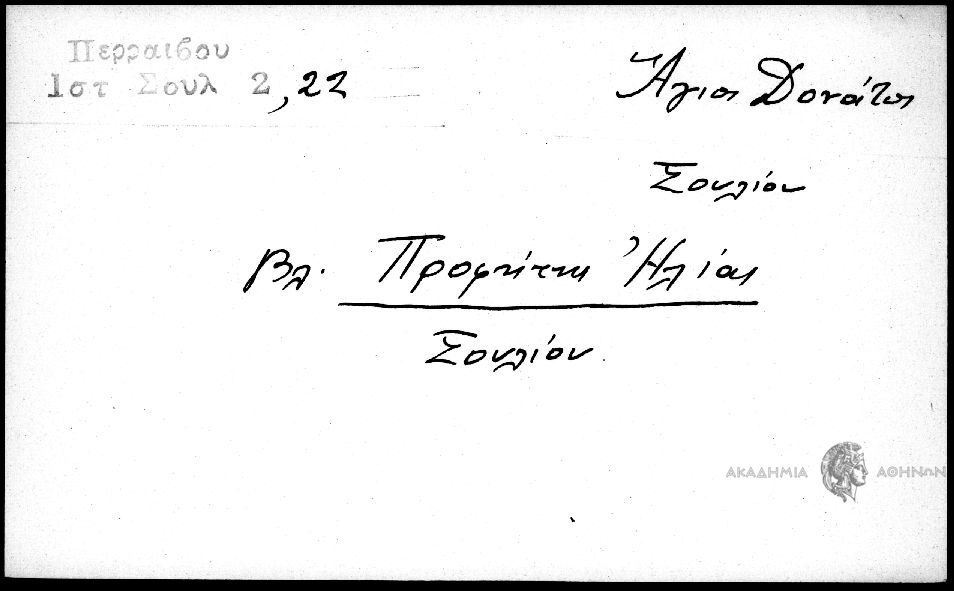 Περραιβου
Ιστ Σουλ 2,22
Ἅγιος Δονάτος
Σουλίου
βλ. Προφήτης Ἠλίας
Σουλίου
ΑΚΑΔΗΜΙΑ ΑΘΗΝΩΝ